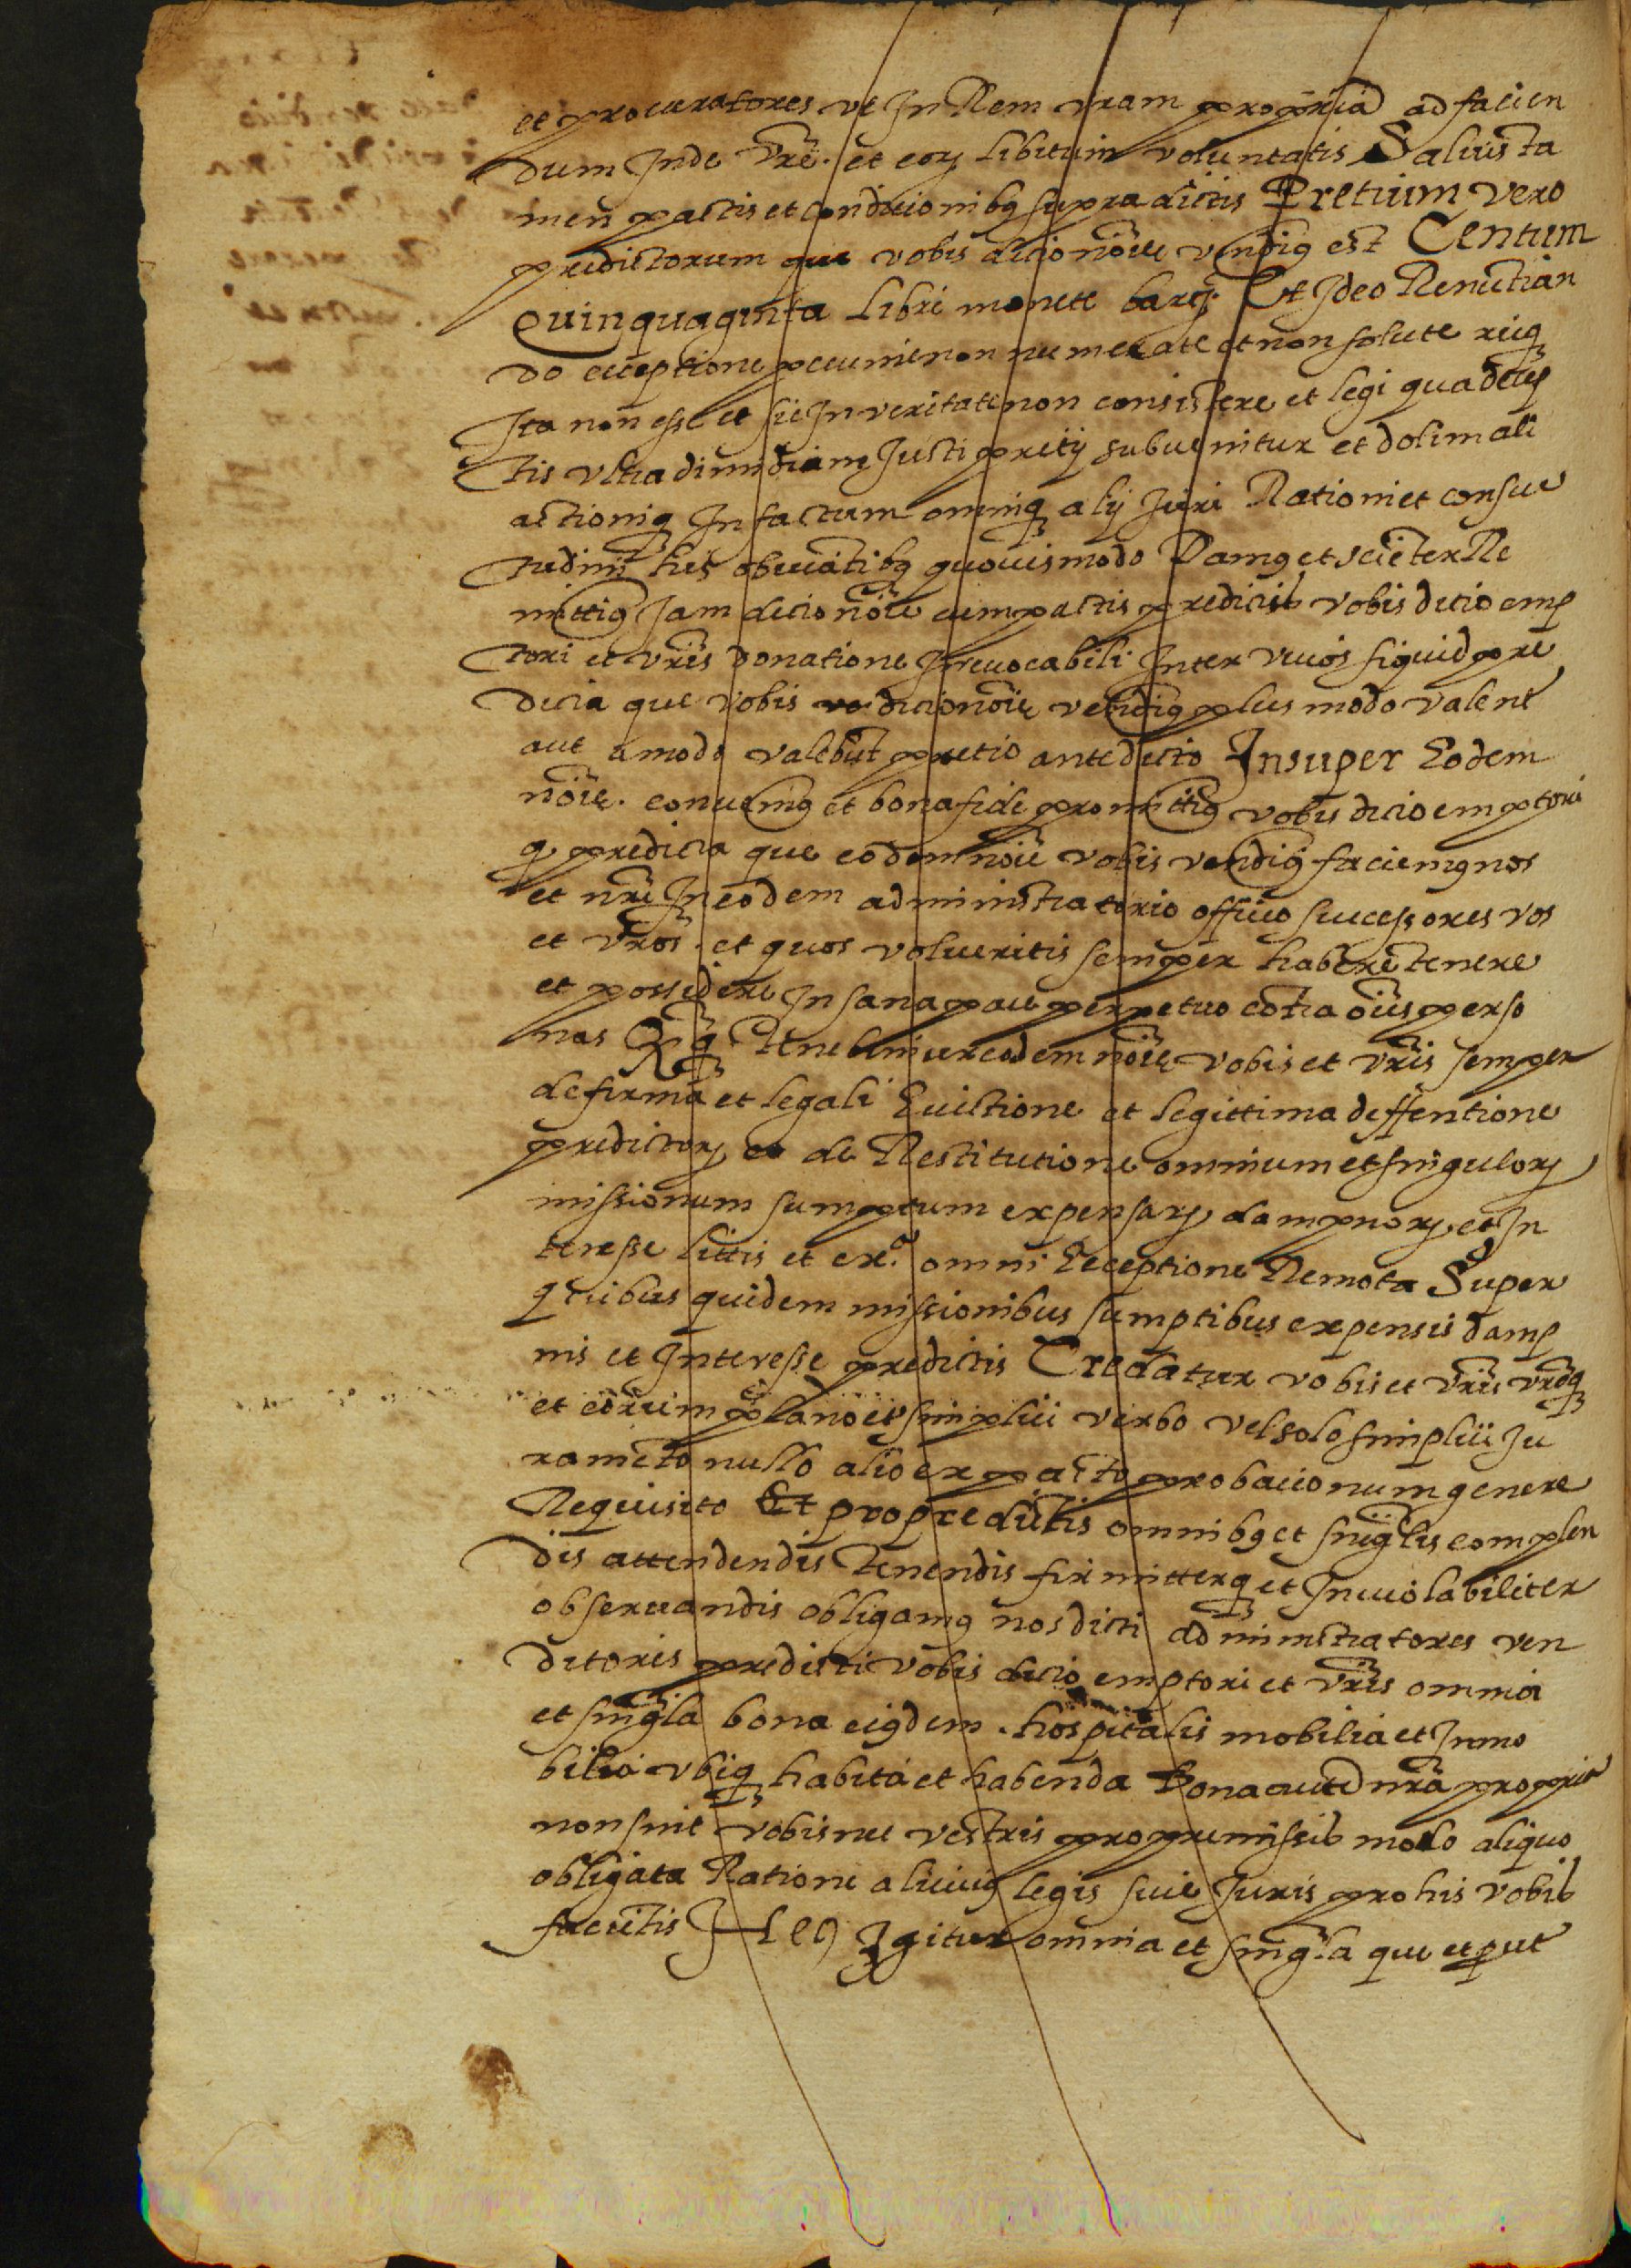 et procuratores ut In Rem vram propria ad facien
dum Inde vre. et eorum libitum voluntatis Salvis ta
men pactis et conditionibus supradictis Pretium vero
predictorum que vobis dicto noie vendimus est Centum
Quinquaginta libre monete barc. Et Ideo Renuntian
do exceptione pecunie non numerate et non solute reiq
Ita non esse et sic In veritate non consistere et legi qua decep
tis ultra dimidiam Justi pretij subvenitur et dolimali
actioniq In factum omniq alij Juri Rationi et consue
tudini his obviatibus quovismodo Damus et scieter Re
mittimus Jam dicto noie cum pactis predictis vobis dicto emp
tori et vris donatione Irrevocabili Inter vivos siquid pre
dicta que vobis dicto noie vendimus plus modo valent
aut amodo valebut pretio antedicto Insuper Eodem
noie. convenimus et bona fide promittimus vobis dicto emptori
q predicta que eodem noie vobis vendimus faciemus nos
et nri In eodem administratorio officio successores vos
et vros. et quos volueritis semper habere tenere
et possidere In sana pace perpetuo cotra oes perso
nas Et q tenebimur eodem noie vobis et vris semper
de firma et legali Evictione et legittima deffentione
predictorum et de Restitutione omnium et singulorum
missionum sumptum expensarum dampnorum et In
teresse littis et exa. omni Exceptione Remota Super
quibus quidem missionibus sumptibus expensis damp
nis et Interesse predictis Credatur vobis et vris vroq
et eorum plano et simplici verbo vel solo simplici Ju
rameto nullo alio ex pacto probacionum genere
Requisito Et pro predictis omnibus et singlis complen
dis attendendis tenendis firmitterq et Inviolabiliter
observandis obligamus nos dicti administratores ven
ditores predicti vobis dicto emptori et vris omnia
et singla bona eiusdem hospitalis mobilia et Inmo
bilia ubiq habita et habenda Bona aute nra propria
non sint vobis nec vestris pro premissis modo aliquo
obligata Ratione alicuius legis sive Juris pro his vobis
facientis Hec Igitur omnia et singla que et put